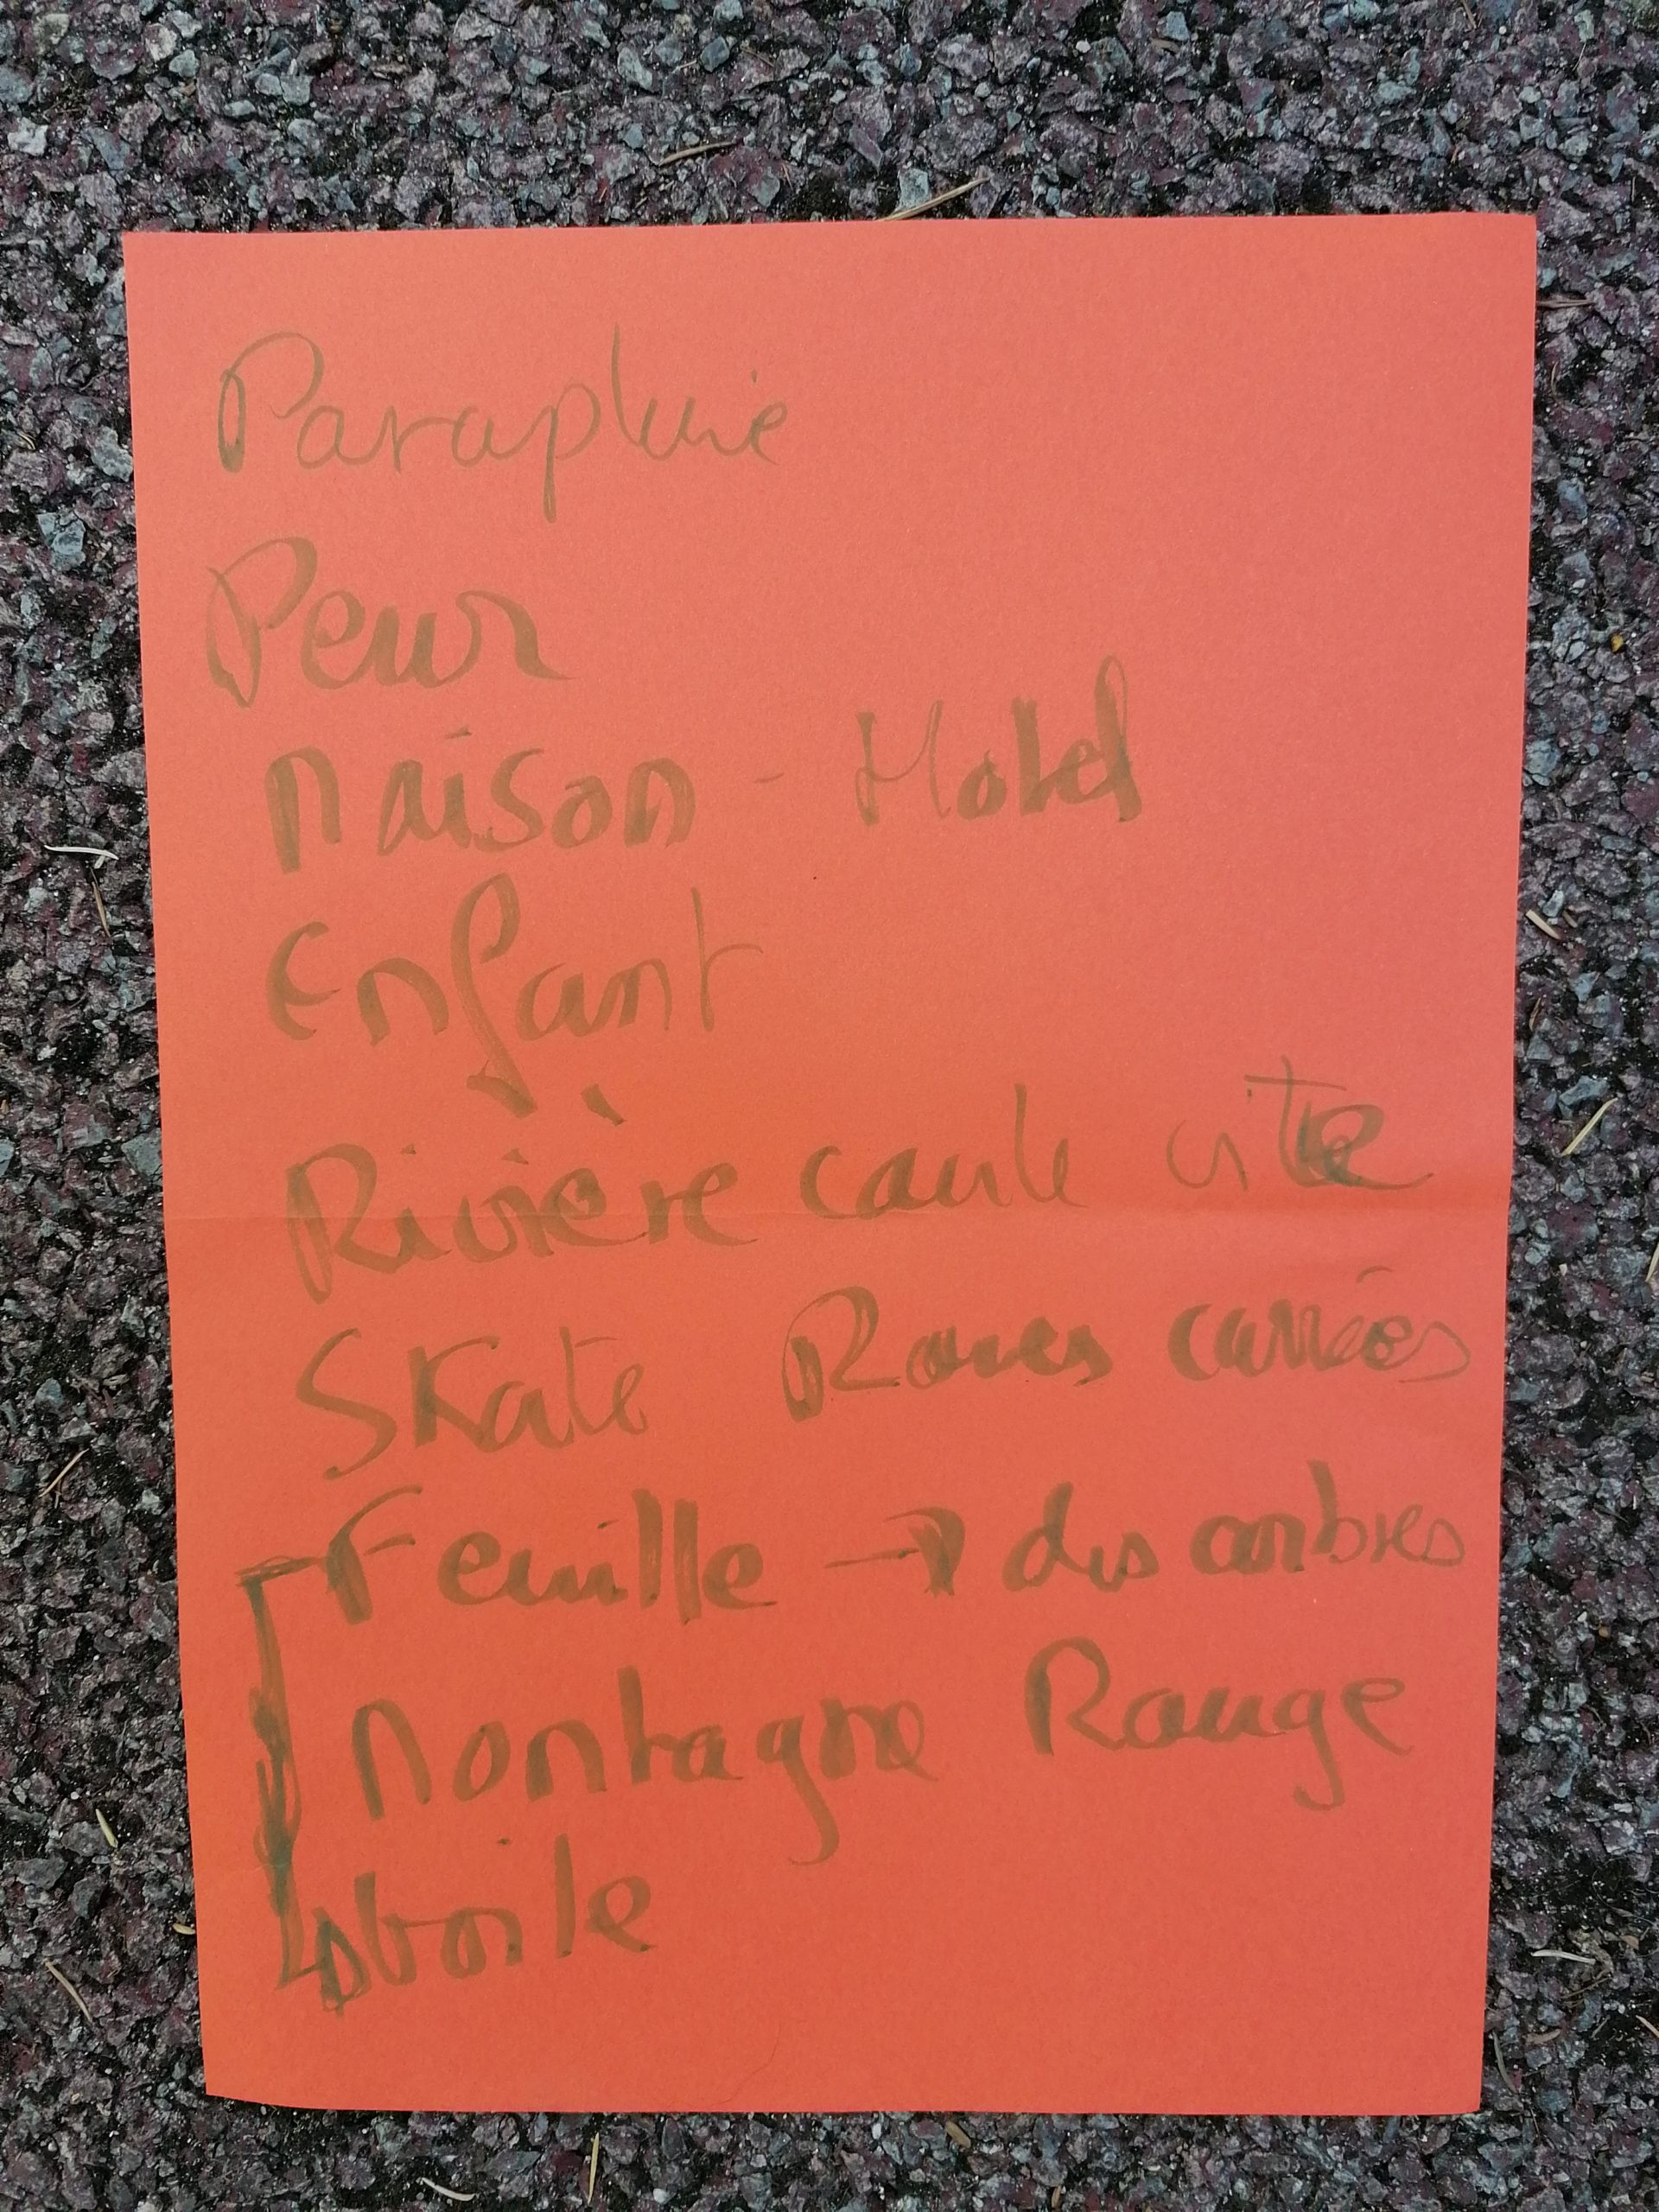 Parapluie
Peur
Maison - Hotel
Enfant
Rivière coule vite
Skate Roues carrées
Feuille → des arbres
Montagne Rouge
étoile